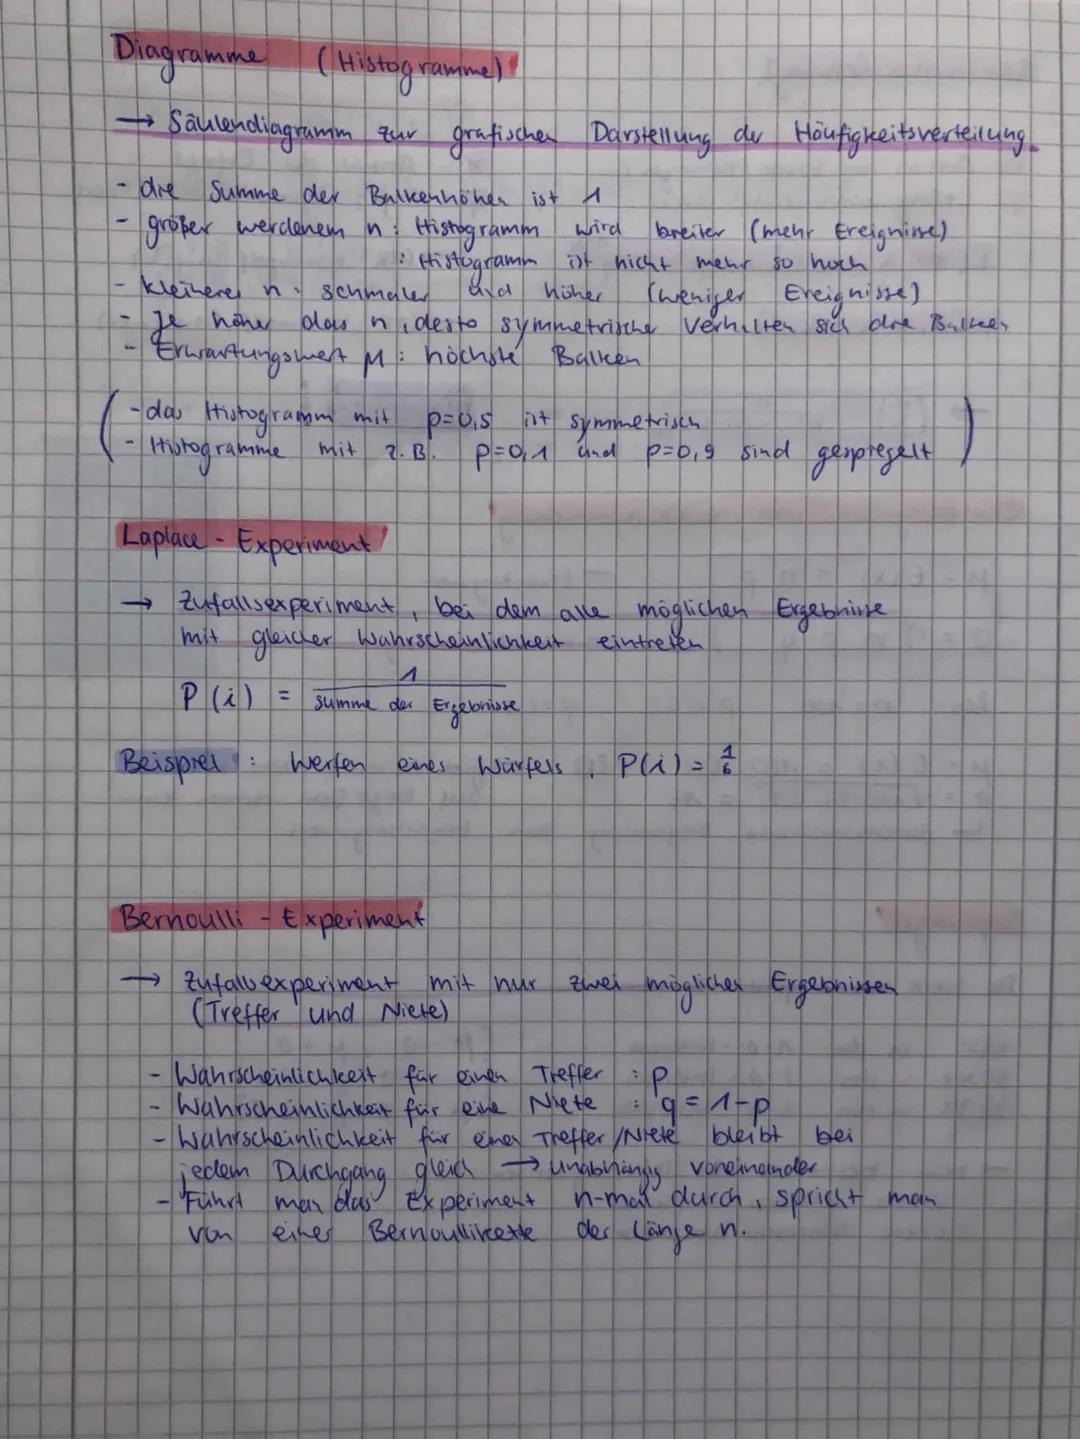 Diagramme (Histogramme)
→ Säulendiagramm zur grafischen Darstellung der Häufigkeitsverteilung.
- die Summe der Balkenhöhen ist 1
- größer werdenem n : Histogramm wird breiter (mehr Ereignisse)
: Histogramm ist nicht mehr so hoch
- kleineres n : schmaler und höher (weniger Ereignisse)
- Je höher das n, desto symmetrischer verhalten sich die Balken
- Erwartungswert μ : höchste Balken
( - das Histogramm mit p=0,5 ist symmetrisch
- Histogramme mit z.B. p=0,1 und p=0,9 sind gespiegelt )
Laplace - Experiment
→ Zufallsexperiment, bei dem alle möglichen Ergebnisse
mit gleicher Wahrscheinlichkeit eintreten
P(i) = 1 / Summe der Ergebnisse
Beispiel : Werfen eines Würfels, P(i) = 1/6
Bernoulli - Experiment
→ Zufallsexperiment mit nur zwei möglichen Ergebnissen
(Treffer und Niete)
- Wahrscheinlichkeit für einen Treffer : p
- Wahrscheinlichkeit für eine Niete : q = 1-p
- Wahrscheinlichkeit für einen Treffer/Niete bleibt bei
jedem Durchgang gleich → unabhängig voneinander
- Führt man das Experiment n-mal durch, spricht man
von einer Bernoullikette der Länge n.